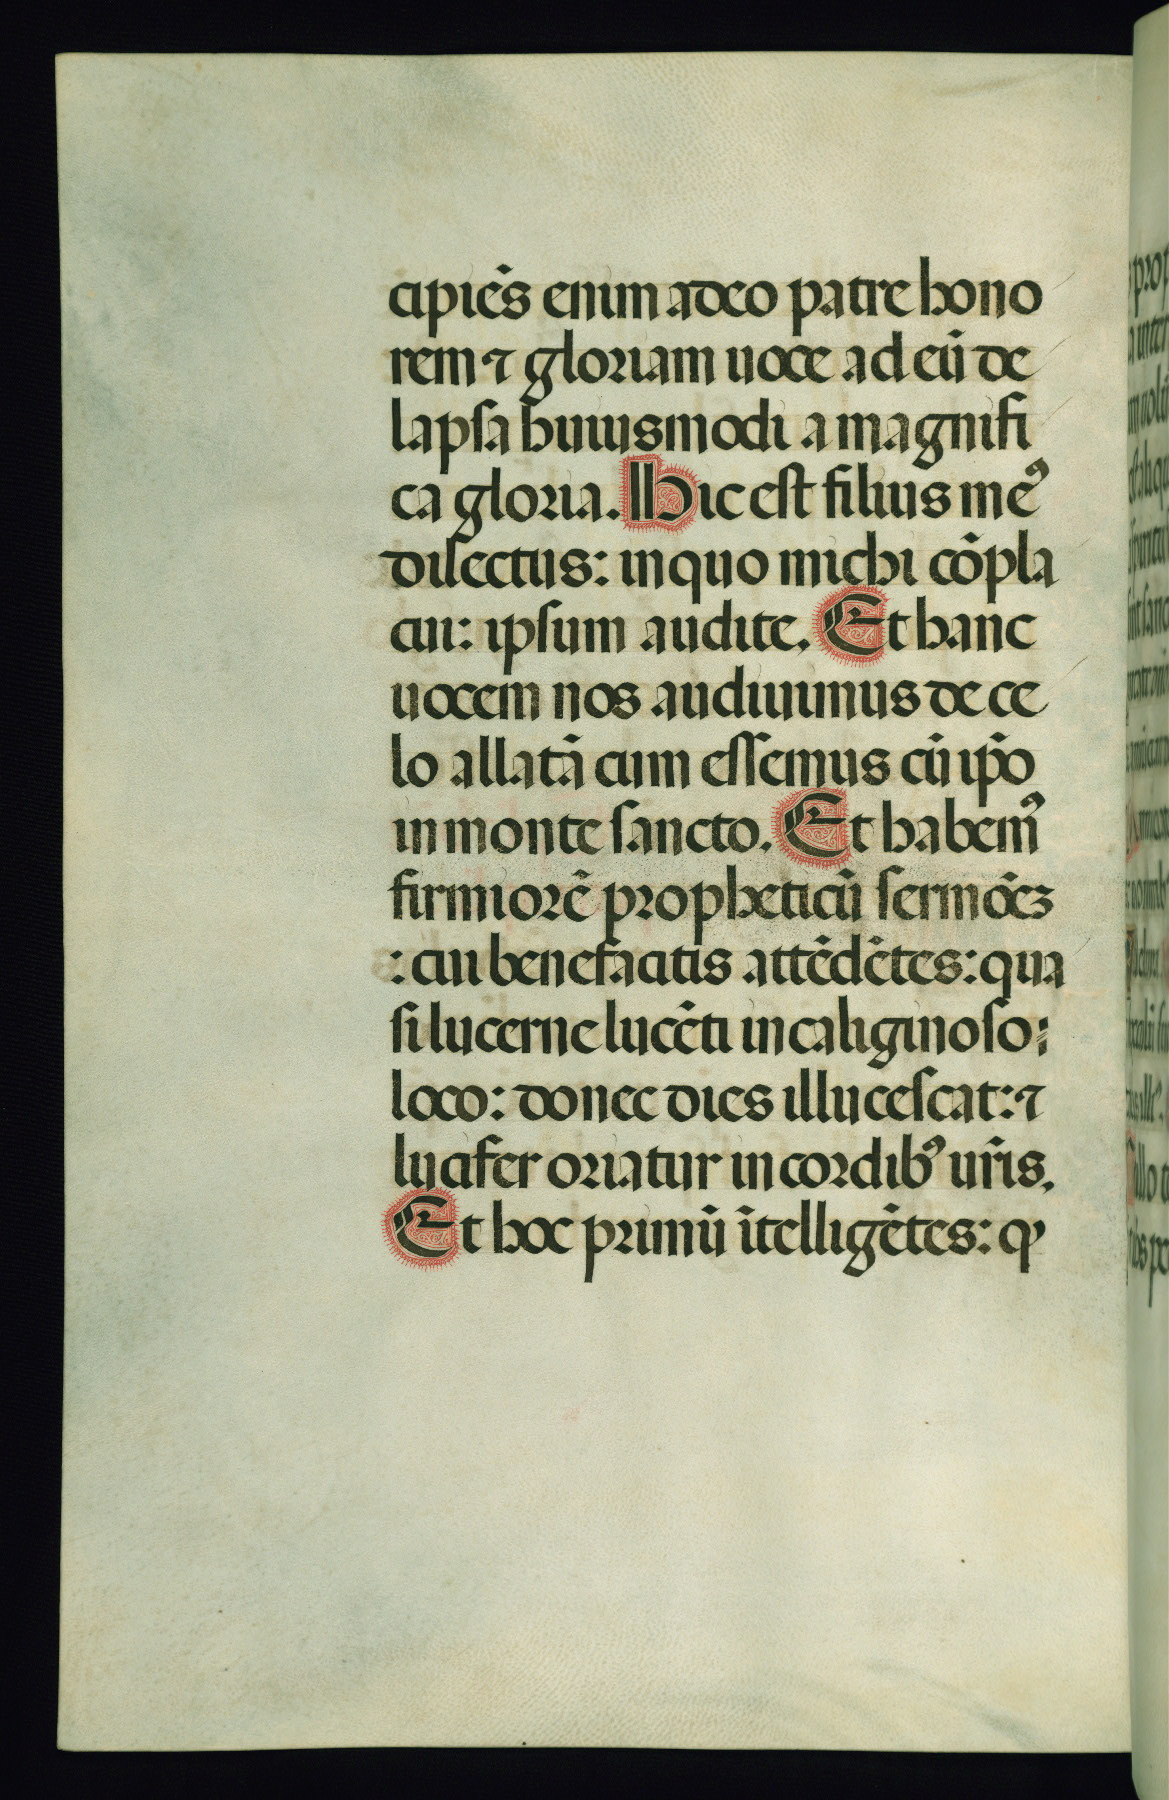 cipiẽs enim adeo patre hono
rem ⁊ gloriam uoce ad eũ de
lapſa huiusmodi a magnifi
ca gloria. Hic eſt filius meꝰ
dilectus: in quo michi cõpla
cui: ipſum audite. Et hanc
uocem nos audiuimus de ce
lo allatã cum eſſemus cũ ip̃o
in monte ſancto. Et habemꝰ
firmiorẽ propheticũ ſermõeꝫ
: cui benefacitis attẽdẽtes: qua
ſi lucerne lucẽti in caliginoſo:
loco: donec dies illuceſcat: ⁊
lucifer oriatur in cordibꝰ ur̃is.
Et hoc primũ ĩtelligẽtes: ꝙ